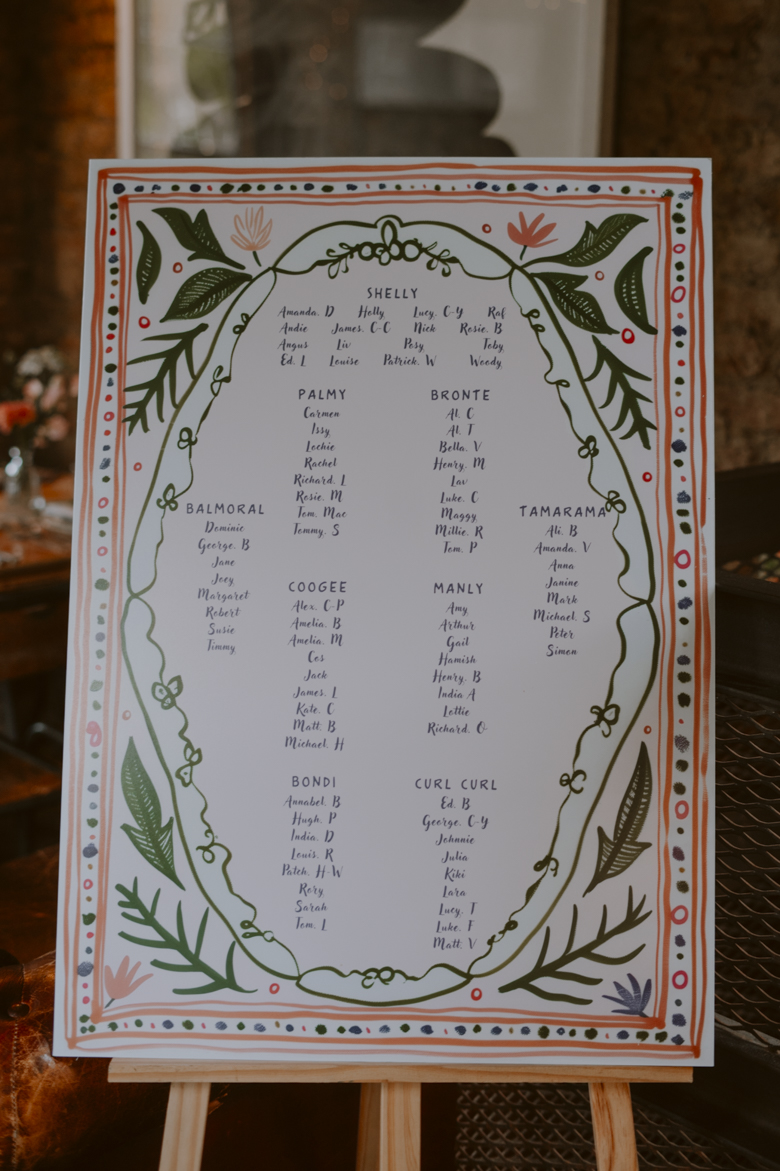 SHELLY
Amanda. D Holly Lucy. C-Y Raf
Andie James. C-C Nick Rosie. B
Angus Liv Posy Toby
Ed. L Louise Patrick. W Woody
PALMY
Carmen
Issy
Lochie
Rachel
Richard. L
Rosie. M
Tom. Mac
Tommy. S
BRONTE
Al. C
Al. T
Bella. V
Henry. M
Lav
Luke. C
Maggy
Millie. R
Tom. P
BALMORAL
Dominic
George. B
Jane
Joey
Margaret
Robert
Susie
Timmy
TAMARAMA
Ali. B
Amanda. V
Anna
Janine
Mark
Michael. S
Peter
Simon
COOGEE
Alex. C-P
Amelia. B
Amelia. M
Cos
Jack
James. L
Kate. C
Matt. B
Michael. H
MANLY
Amy
Arthur
Gail
Hamish
Henry. B
India A
Lottie
Richard. O
BONDI
Annabel. B
Hugh. P
India. D
Louis. R
Patch. H-W
Rory
Sarah
Tom. L
CURL CURL
Ed. B
George. C-Y
Johnnie
Julia
Kiki
Lara
Lucy. T
Luke. F
Matt. V